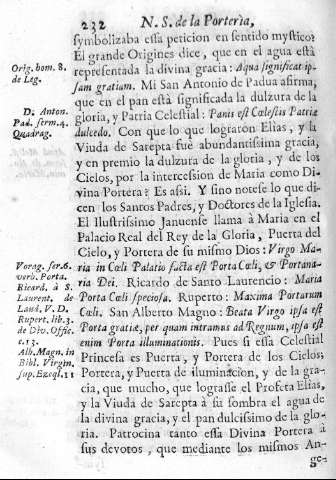 232 N. S. de la Porterìa,
symbolizaba essa peticion en sentido mystico?
El grande Origines dice, que en el agua està
representada la divina gracia: Aqua significat ip-
sam gratiam. Mi San Antonio de Padua afirma,
que en el pan està significada la dulzura de la
gloria, y Patria Celestial: Panis est Cœlestis Patriæ
dulcedo. Con que lo que lograron Elias, y la
Viuda de Sarepta fue abundantissima gracia,
y en premio la dulzura de la gloria, y de los
Cielos, por la intercession de Maria como Di-
vina Portera? Es assi. Y sino notese lo que di-
cen los Santos Padres, y Doctores de la Iglesia.
El Ilustrissimo Januense llama à Maria en el
Palacio Real del Rey de la Gloria, Puerta del
Cielo, y Portera de su mismo Dios: Virgo Ma-
ria in Cœli Palatio facta est Porta Cœli, & Portana-
ria Dei. Ricardo de Santo Laurencio: Maria
Porta Cœli speciosa. Ruperto: Maxima Portarum
Cœli. San Alberto Magno: Beata Virgo ipsa est
Porta gratiæ, per quam intramus ad Regnum, ipsa est
enim Porta illuminationis. Pues si essa Celestial
Princesa es Puerta, y Portera de los Cielos;
Portera, y Puerta de iluminacion, y de la gra-
cia, que mucho, que lograsse el Profeta Elias,
y la Viuda de Sarepta à su sombra el agua de
la divina gracia, y el pan dulcissimo de la glo-
ria. Patrocina tanto essa Divina Portera à
sus devotos, que mediante los mismos An-
ge-
Orig. hom. 8.
de Leg.
D. Anton.
Pad. serm. 4.
Quadrag.
Vorag. ser. 6.
verb. Porta.
Ricard. à S.
Laurent. de
Laud. V. D.
Rupert. lib. 3.
de Div. Offic.
c. 13.
Alb. Magn. in
Bibl. Virgin.
sup. Ezeq. l. 11